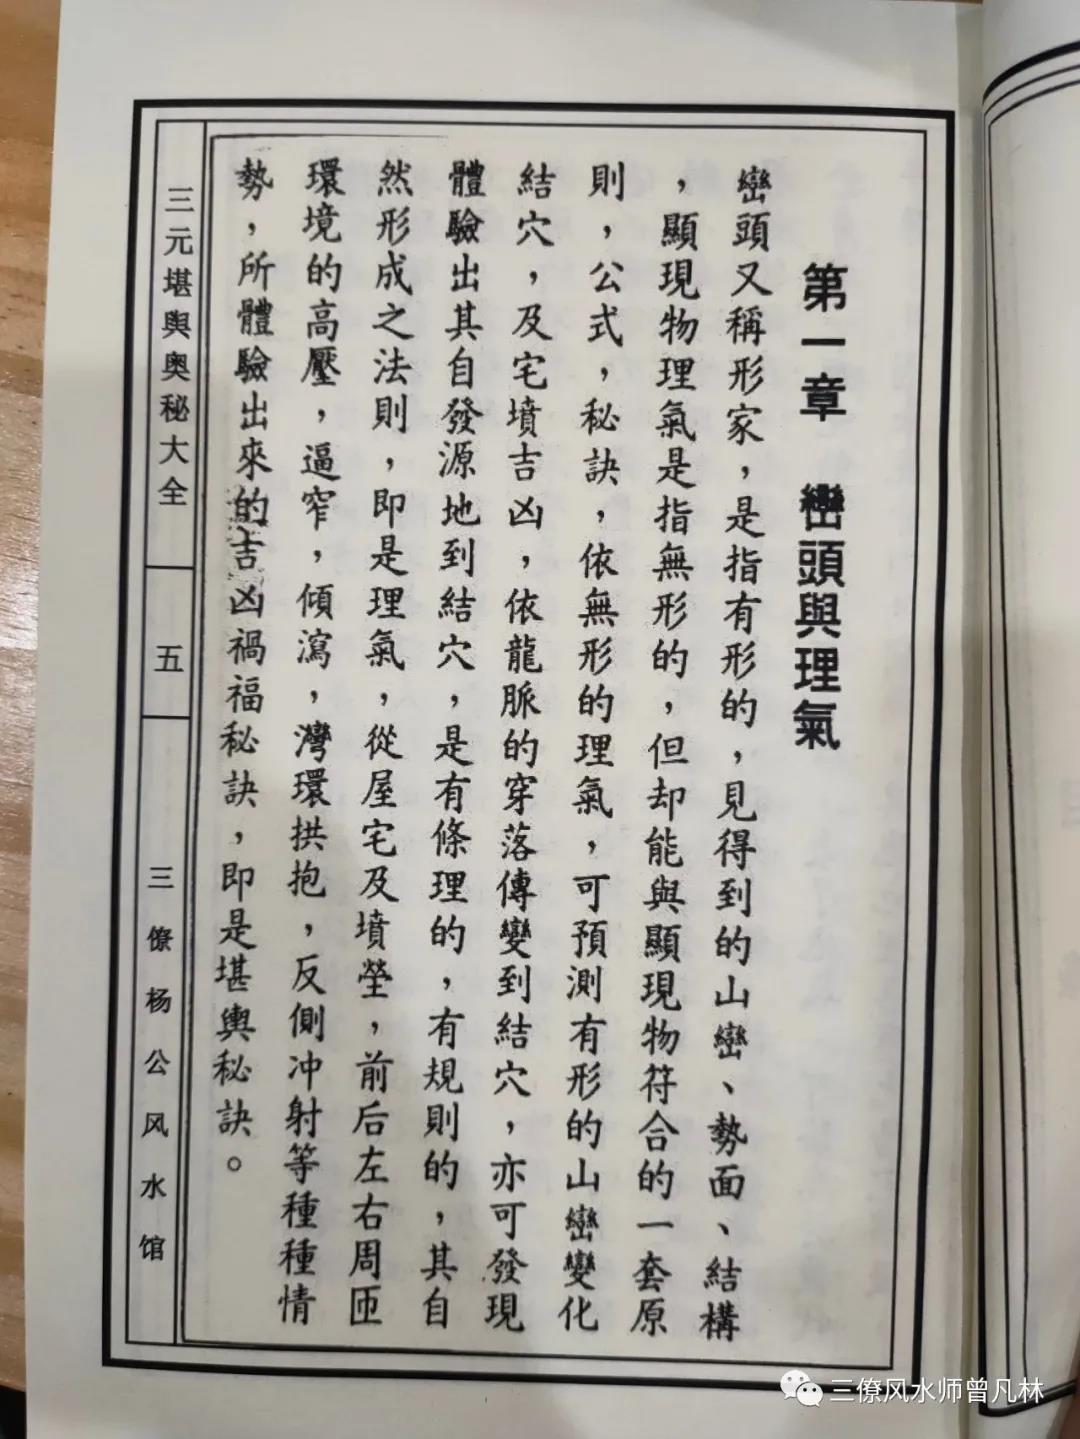 第一章 巒頭與理氣
巒頭又稱形家，是指有形的，見得到的山巒、勢面、結構
，顯現物理氣是指無形的，但却能與顯現物符合的一套原
則，公式，秘訣，依無形的理氣，可預測有形的山巒變化
結穴，及宅墳吉凶，依龍脈的穿落傳變到結穴，亦可發現
體驗出其自發源地到結穴，是有條理的，有規則的，其自
然形成之法則，即是理氣，從屋宅及墳塋，前后左右周匝
環境的高壓，逼窄，傾瀉，灣環拱抱，反側冲射等種種情
勢，所體驗出來的吉凶禍福秘訣，即是堪輿秘訣。
三元堪舆奥秘大全
五
三僚杨公风水馆
三僚风水师曾凡林